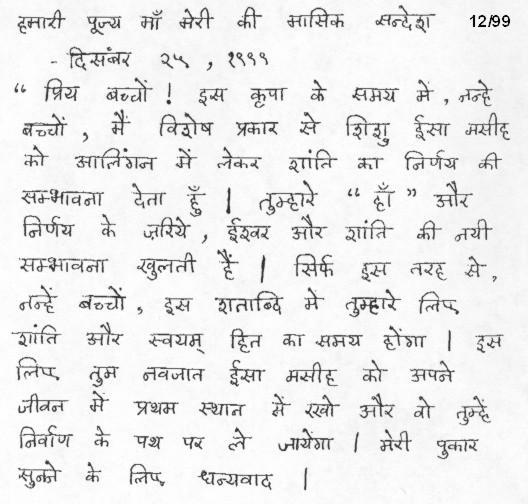 हमारी पूज्य माँ मेरी की मासिक सन्देश 12/99
- दिसंबर २५ , १९९९
“ प्रिय बच्चों ! इस कृपा के समय में , नन्हे
बच्चों , मैं विशेष प्रकार से शिशु ईसा मसीह
को आलिंगन में लेकर शांति का निर्णय की
सम्भावना देता हुँ | तुम्हारे “ हाँ ” और
निर्णय के ज़रिये , ईश्वर और शांति की नयी
सम्भावना खुलती हैं | सिर्फ इस तरह से ,
नन्हें बच्चों , इस शताब्दि में तुम्हारे लिए
शांति और स्वयम् हित का समय होंगा | इस
लिए तुम नवजात ईसा मसीह को अपने
जीवन में प्रथम स्थान में रखो और वो तुम्हें
निर्वाण के पथ पर ले जायेंगा | मेरी पुकार
सुनने के लिए धन्यवाद |